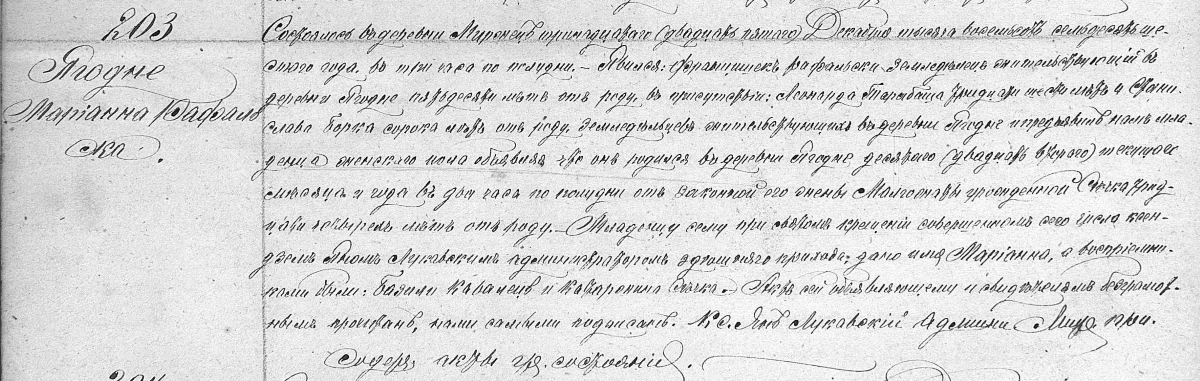 203
Ягодне
Маріанна Рафаль
ска.
Состоялось въ деревни Миренецъ тринадцатаго (двадцать пятого) Декабря тысяча восемьсотъ семьдесятъ ше-
стого года, въ три часа по полудни. – Явился: Францишекъ Рафальски земледѣлецъ жительствующій въ
деревни Ягодне пятьдесятъ лѣтъ отъ роду, въ присутствіи: Леонарда Тарабаша тридцати шести лѣтъ и Стани-
слава Борка сорока лѣтъ отъ роду, земледѣльцевъ жительствующихъ въ деревни Ягодне и предъявилъ намъ мла-
денца женского пола объявляя что онъ родился въ деревни Ягодне десятого (двадцать второго) текущаго
мѣсяца и года въ два часа по полудни отъ законной его жены Малгожаты урожденной трид-
цати четырехъ лѣтъ отъ роду. – Младенцу сему при святомъ крещеніи совершенномъ сего числа ксен-
дземъ Яномъ Лукавскимъ администраторомъ здѣшняго прихода, дано имя Маріанна, а воспріемни-
ками были: Базыли и Катаронина – Актъ сей объявляющему и свидѣтелямъ безграмот-
нымъ прочитанъ, нами самыми подписанъ. Кс. Янъ Лукавскій Админи. при.
Содер. акты гр. состоянія.